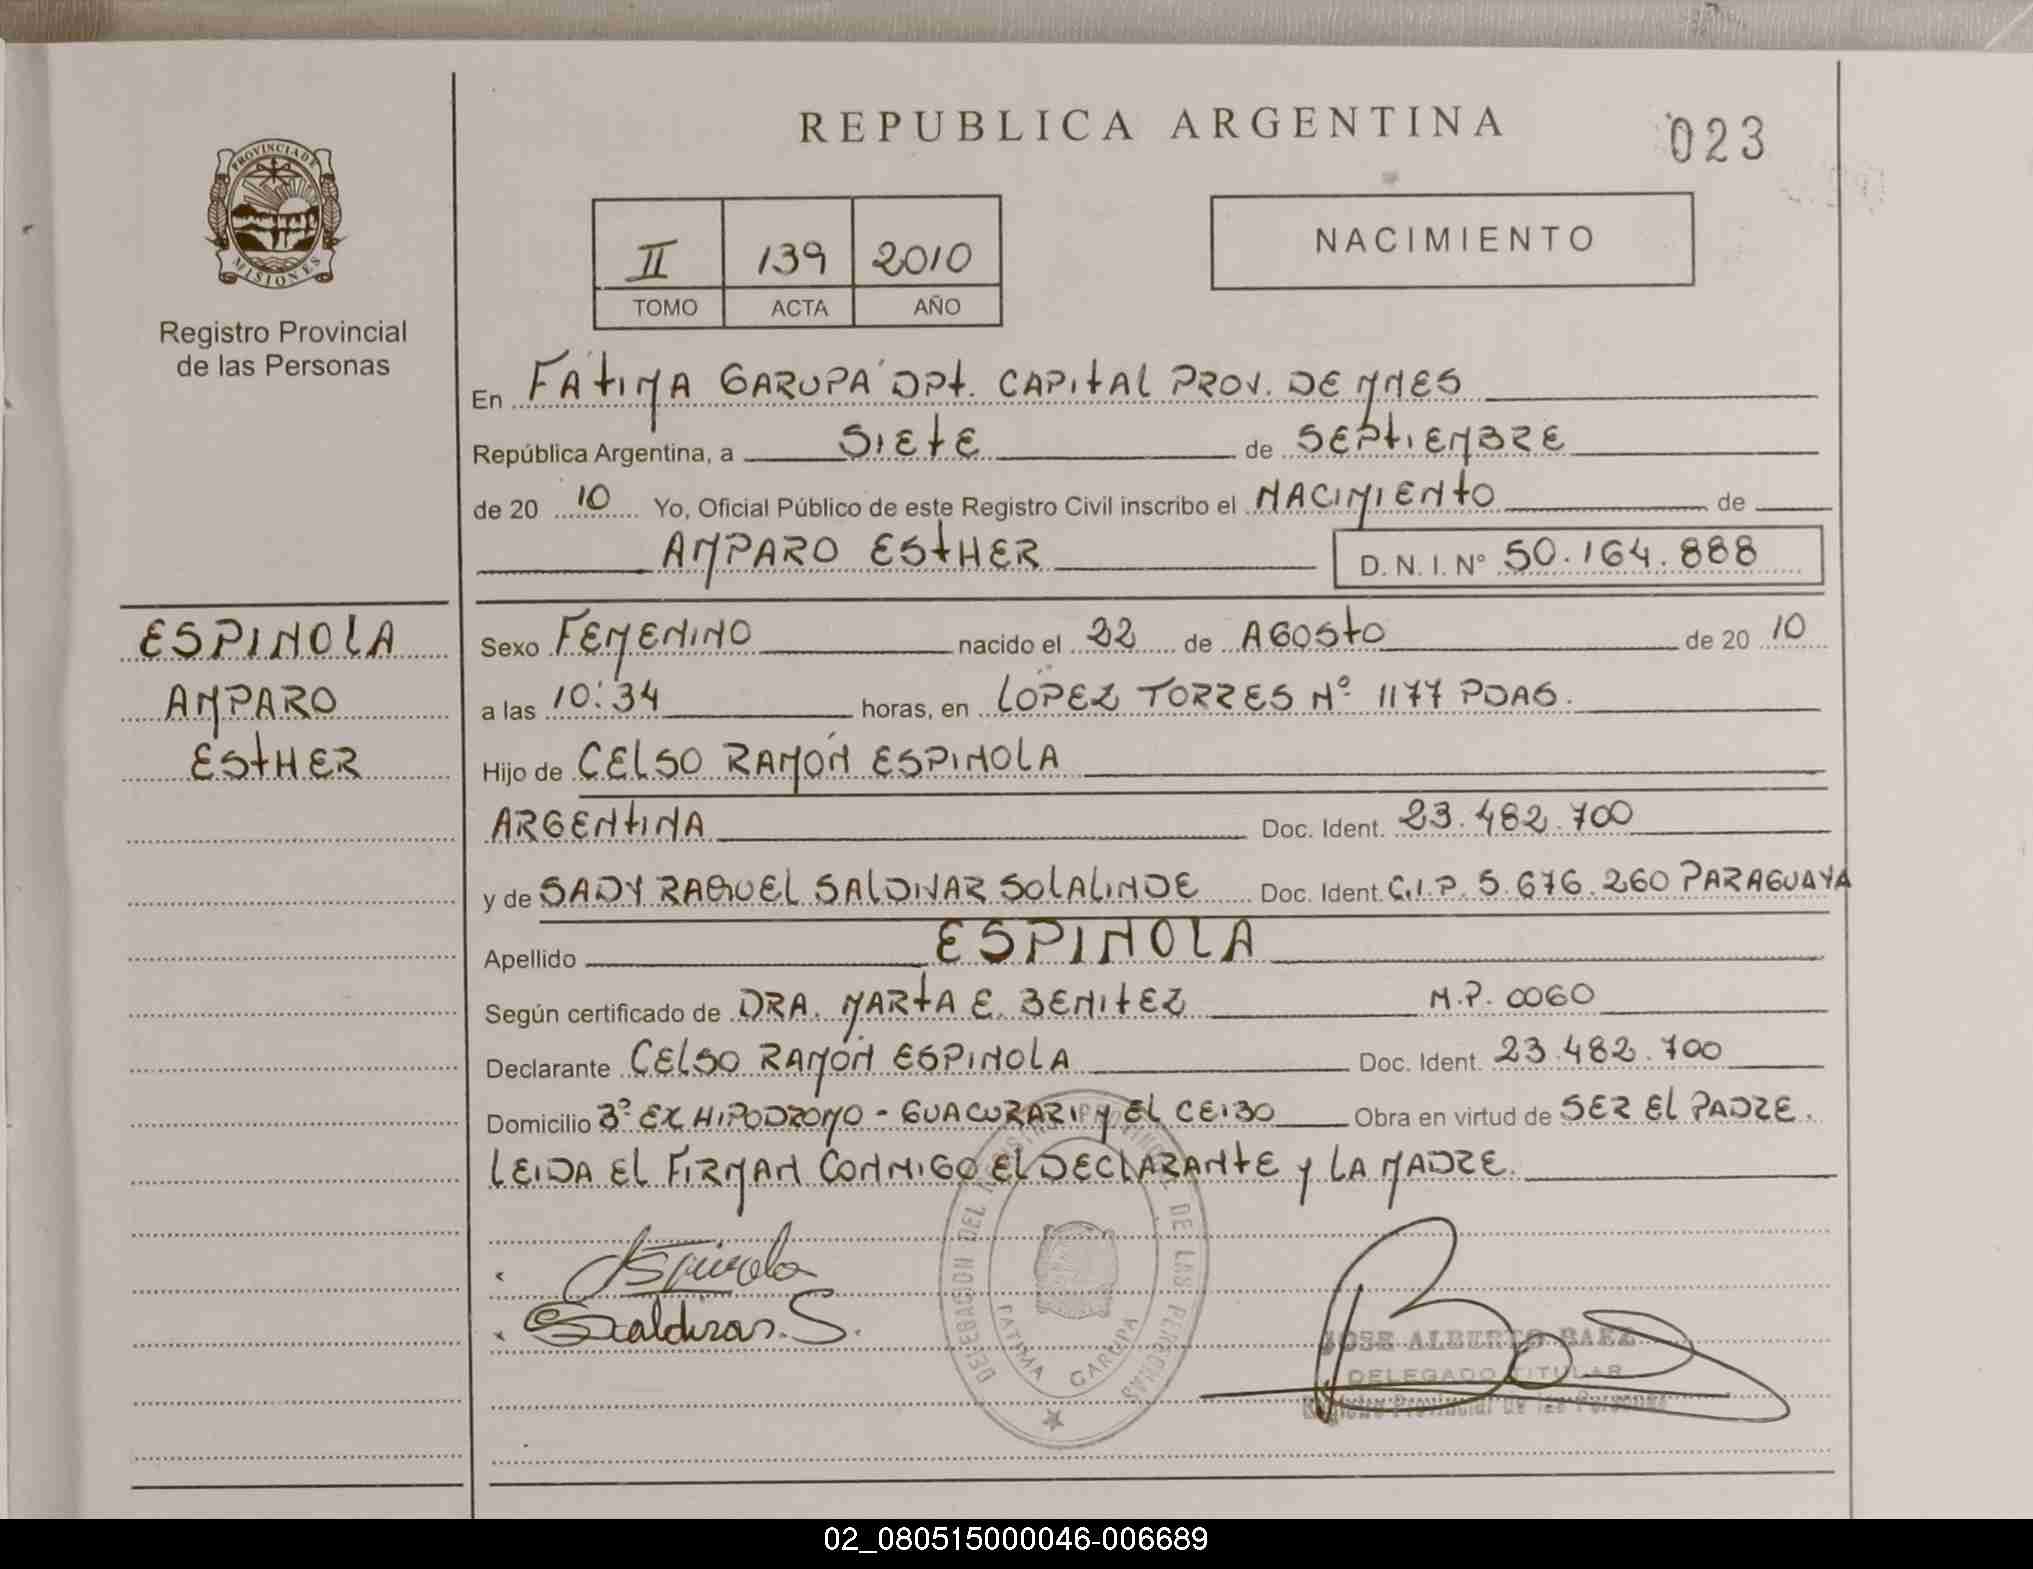 REPUBLICA ARGENTINA
023
PROVINCIA DE
MISIONES
Registro Provincial
de las Personas
II 139 2010
TOMO ACTA AÑO
NACIMIENTO
En FÁTIMA GARUPÁ DPT. CAPITAL PROV. DE MNES
República Argentina, a SIETE de SEPTIEMBRE
de 20 10 Yo, Oficial Público de este Registro Civil inscribo el NACIMIENTO de
AMPARO ESTHER D. N. I. Nº 50.164.888
ESPINOLA
AMPARO
ESTHER
Sexo FEMENINO nacido el 22 de AGOSTO de 20 10
a las 10:34 horas, en LÓPEZ TORRES Nº 1177 PDAS.
Hijo de CELSO RAMÓN ESPINOLA
ARGENTINA Doc. Ident. 23.482.700
y de SADY RAQUEL SALDIVAR SOLALINDE Doc. Ident. C.I.P. 5.676.260 PARAGUAYA
Apellido ESPINOLA
Según certificado de DRA. MARTA E. BENITEZ M.P. 0060
Declarante CELSO RAMÓN ESPINOLA Doc. Ident. 23.482.700
Domicilio Bº EX HIPODROMO - GUACURARI Y EL CEIBO Obra en virtud de SER EL PADRE.
LEIDA EL FIRMAN CONMIGO EL DECLARANTE Y LA MADRE.
DELEGACION DEL REGISTRO PROVINCIAL DE LAS PERSONAS
FATIMA GARUPA
JOSE ALBERTO BAEZ
DELEGADO TITULAR
Registro Provincial de las Personas
02_080515000046-006689